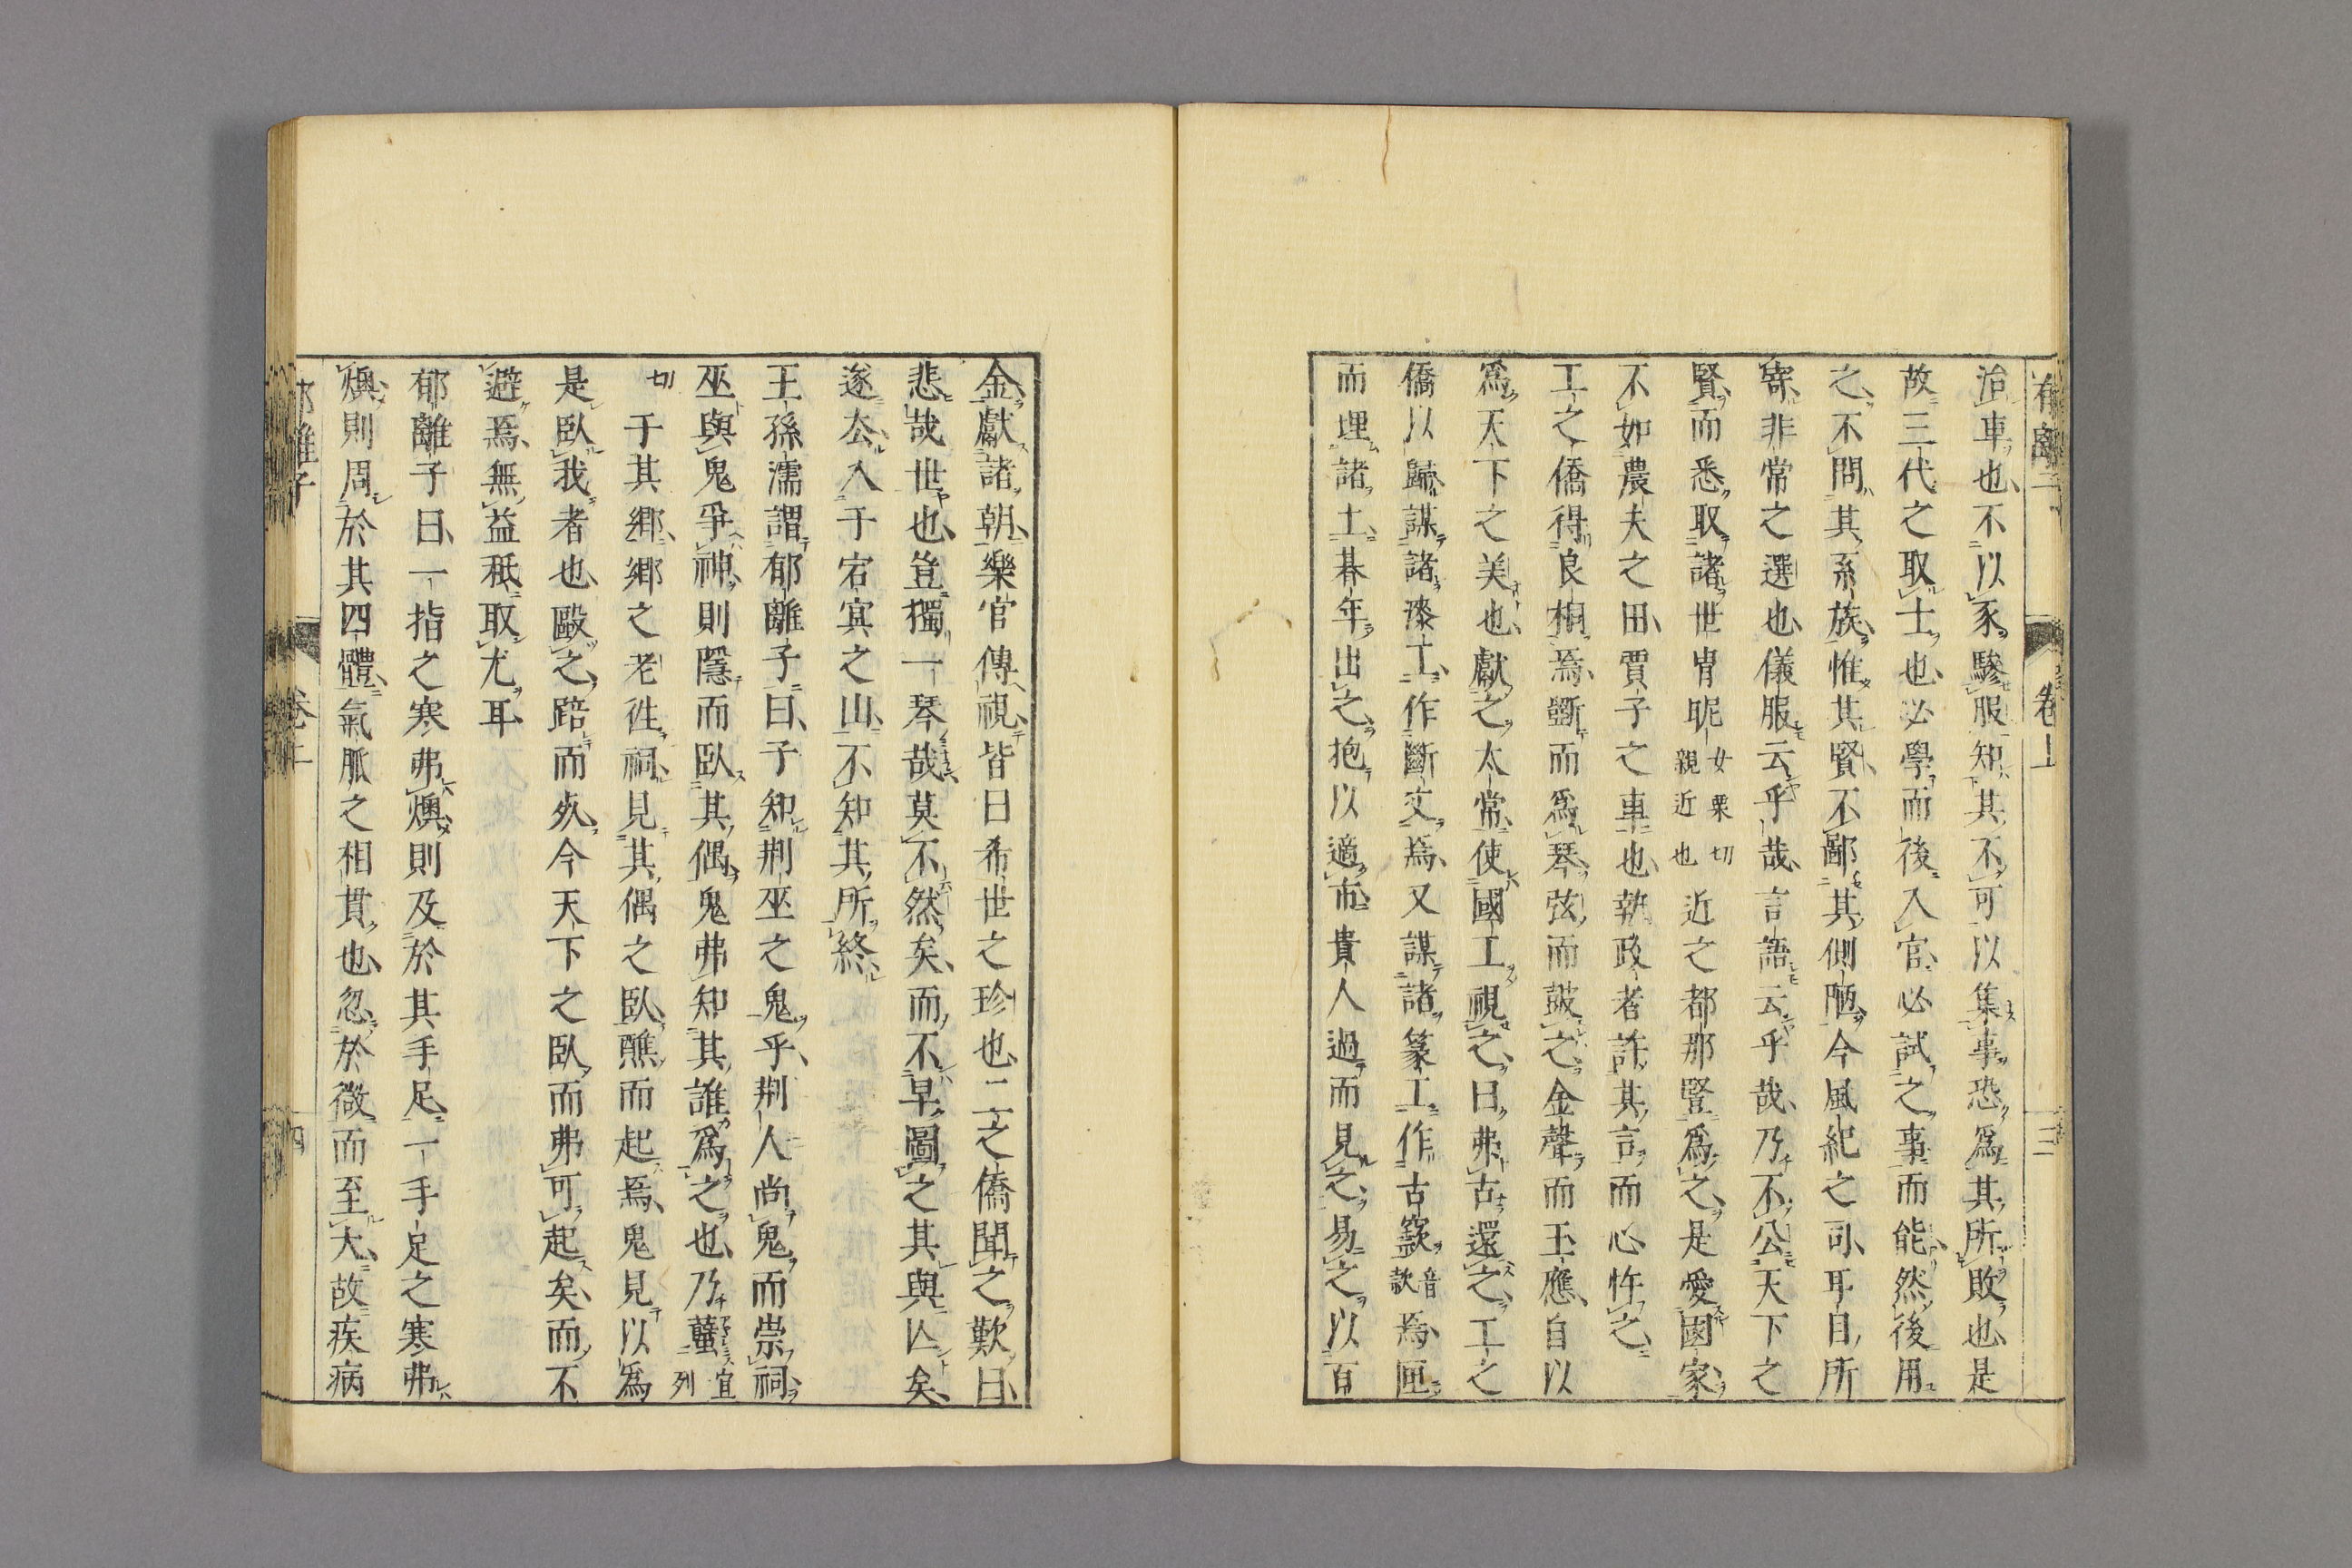 治車也不以豕驂服知其不可以集事恐爲其所敗也是
故三代之取士也必學而後入官必試之事而能然後用
之不問其系族惟其賢不鄙其側陋今風紀之司耳目所
寄非常之選也儀服云乎哉言語云乎哉乃不公天下之
賢而悉取諸世冑昵女栗切親近也近之都那豎爲之是愛國家
不如農夫之田賈子之車也執政者許其言而心忤之
工之僑得良桐焉斵而爲琴弦而鼓之金聲而玉應自以
爲天下之美也獻之太常使國工視之曰弗古還之工之
僑以歸謀諸漆工作斷文焉又謀諸篆工作古窾音款焉匣
而埋諸土朞年出之抱以適市貴人過而見之易之以百
卷上
三
金獻諸朝樂官傳視皆曰希世之珍也工之僑聞之歎曰
悲哉世也豈獨一琴哉莫不然矣而不早圖之其與亾矣
遂去入于宕冥之山不知其所終
王孫濡謂郁離子曰子知荆巫之鬼乎荆人尚鬼而崇祠
巫與鬼爭神則隱而臥其偶鬼弗知其誰爲之也乃蠥宜列
切于其郷郷之老徃祠見其偶之臥醮而起焉鬼見以爲
是臥我者也毆之踣而死今天下之臥而弗可起矣而不
避焉無益秖取尤耳
郁離子曰一指之寒弗燠則及於其手足一手足之寒弗
燠則周於其四體氣脈之相貫也忽於微而至大故疾病
郁離子
卷上
四